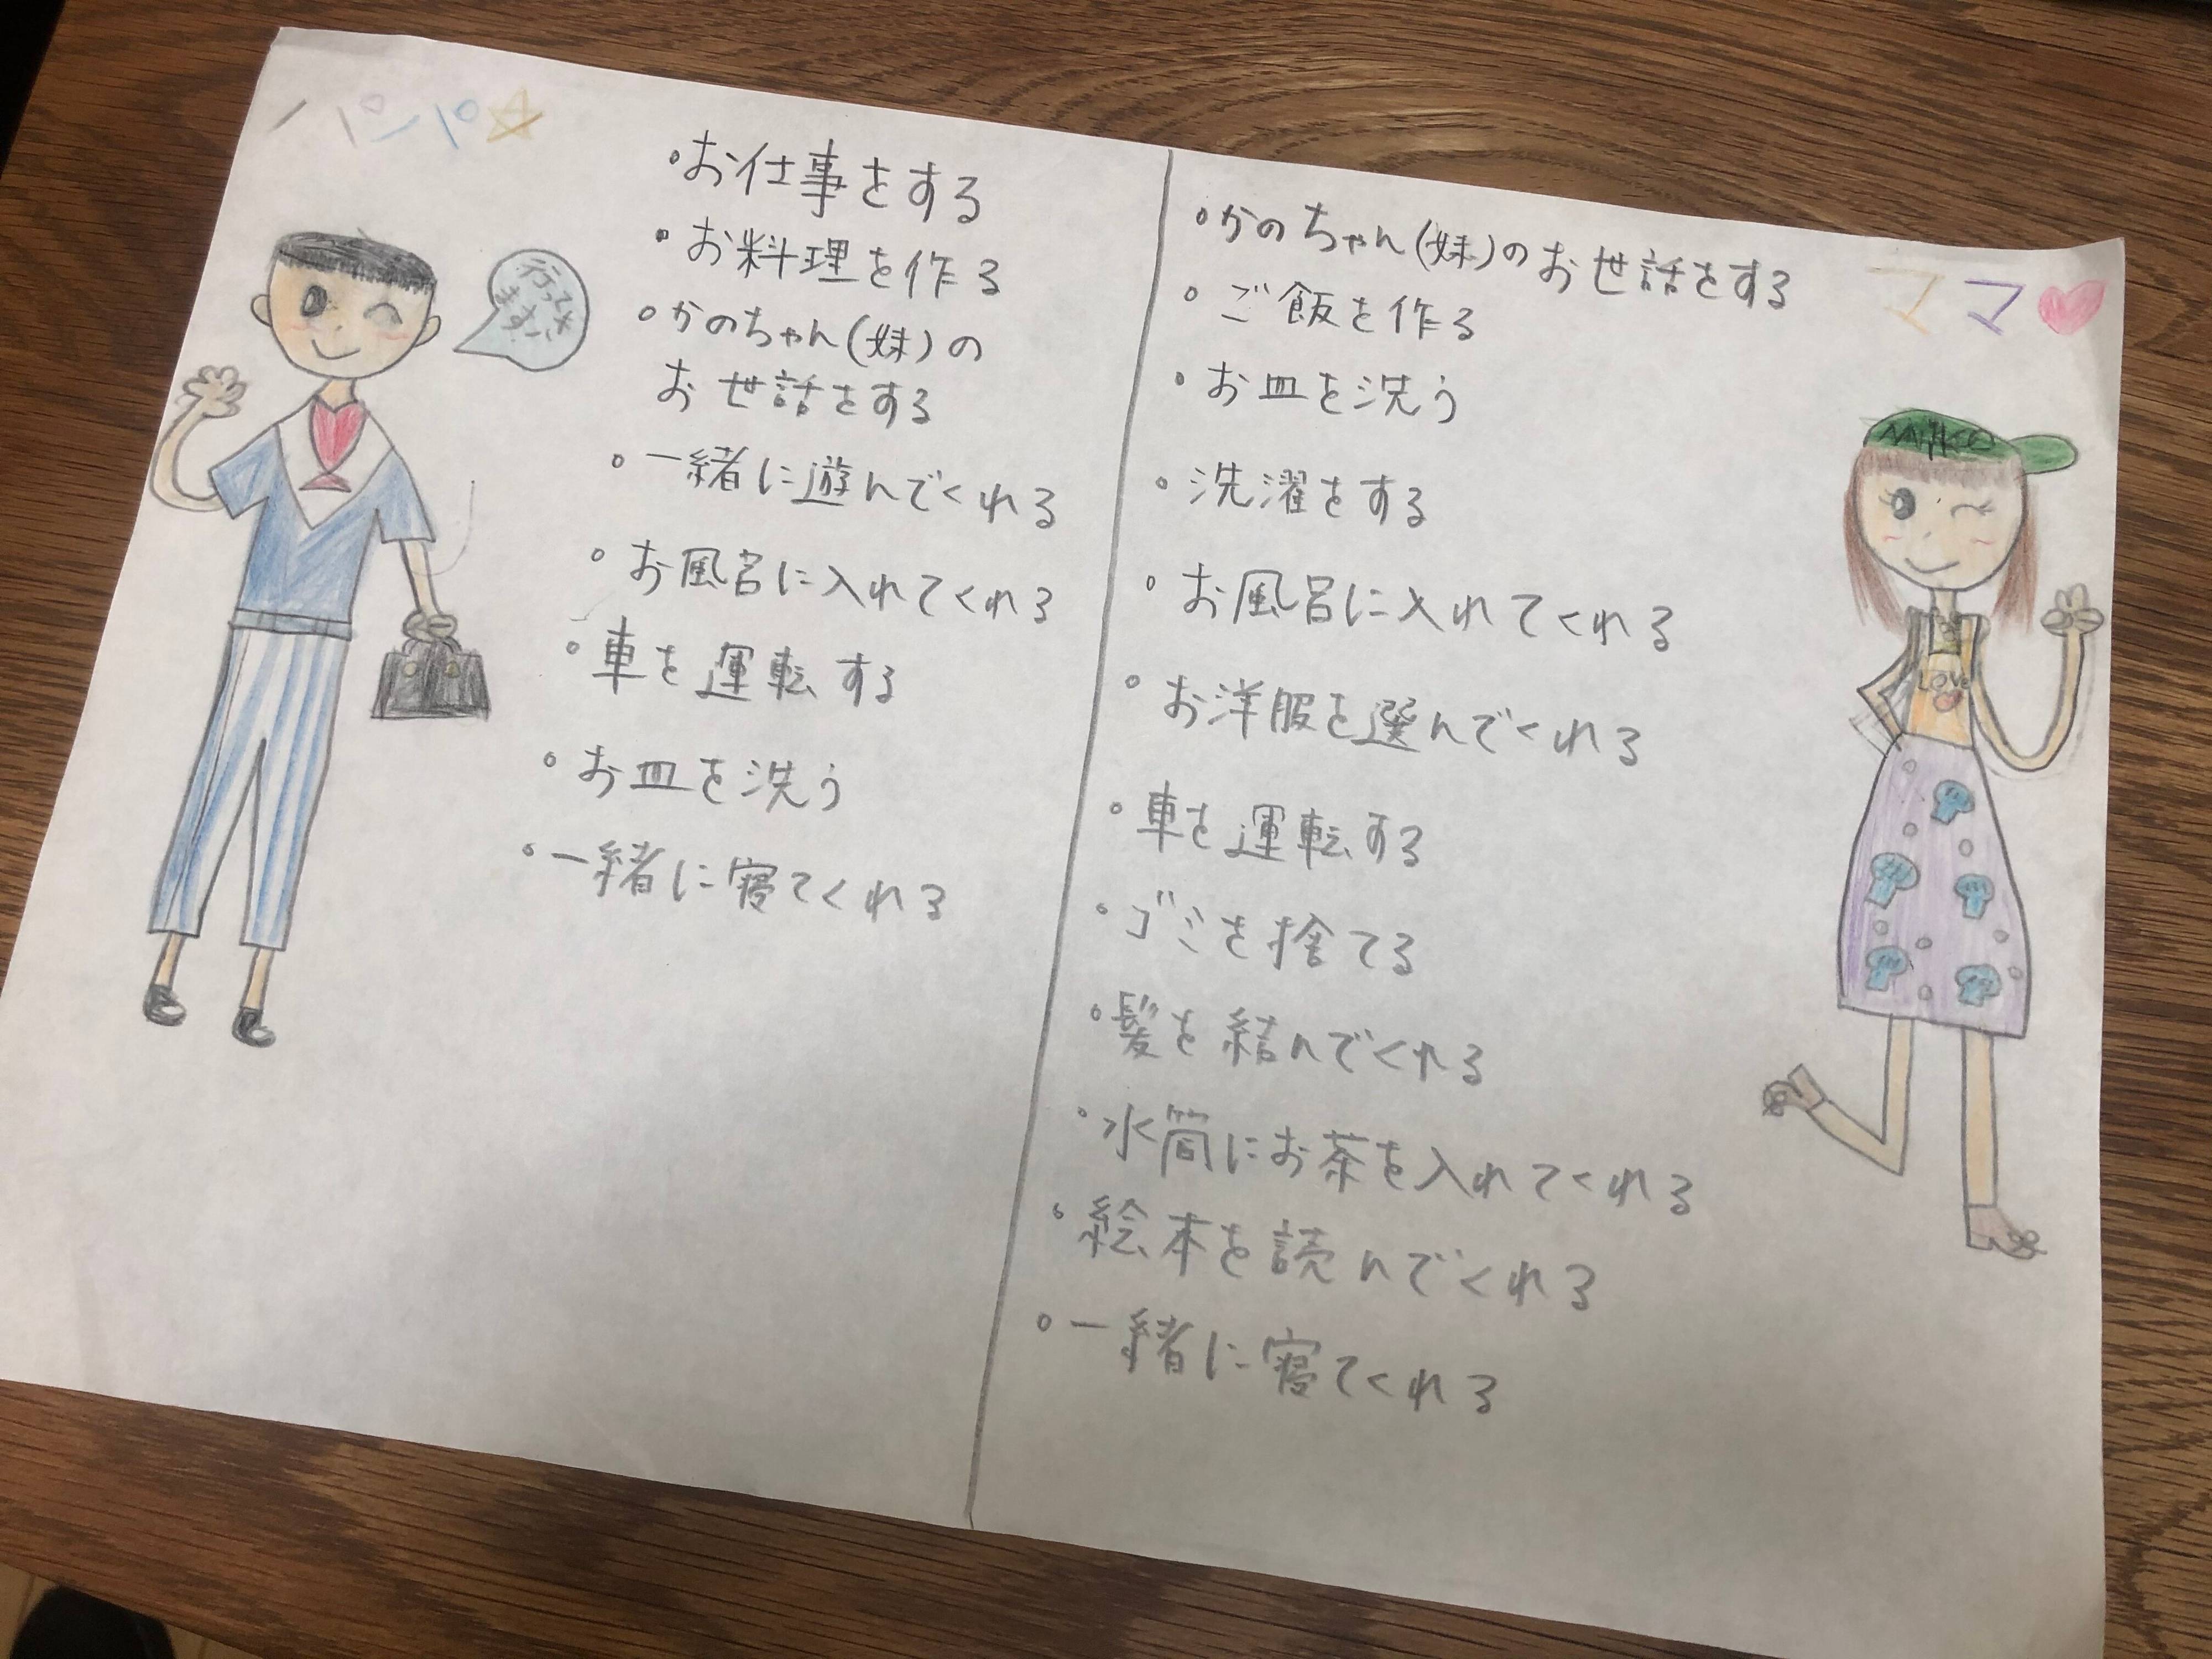 パパ☆
行ってきます!!
・お仕事をする
・お料理を作る
・かのちゃん(妹)の
お世話をする
・一緒に遊んでくれる
・お風呂に入れてくれる
・車を運転する
・お皿を洗う
・一緒に寝てくれる
ママ♥
・かのちゃん(妹)のお世話をする
・ご飯を作る
・お皿を洗う
・洗濯をする
・お風呂に入れてくれる
・お洋服を選んでくれる
・車を運転する
・ゴミを捨てる
・髪を結んでくれる
・水筒にお茶を入れてくれる
・絵本を読んでくれる
・一緒に寝てくれる
LOVE